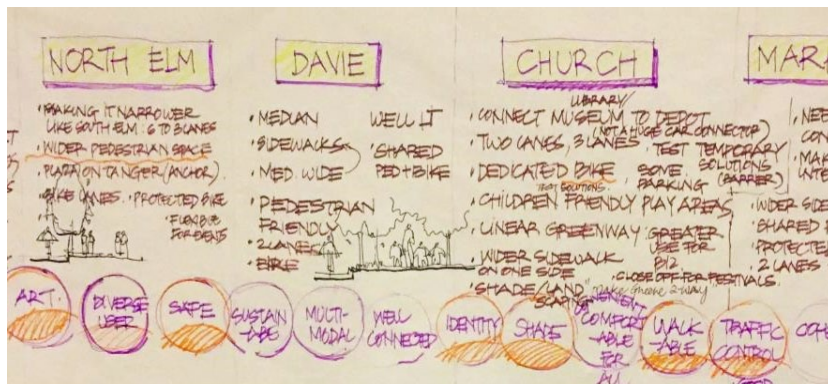 NORTH ELM
• MAKING IT NARROWER
LIKE SOUTH ELM : 6 TO 3 LANES
• WIDER PEDESTRIAN SPACE
• PLAZA ON TANGER (ANCHOR).
• BIKE LANES. • PROTECTED BIKE
• FLEXIBLE
FOR EVENTS
DAVIE
• MEDIAN
WELL LIT
• SIDEWALKS
• SHARED
PED + BIKE
• MED. WIDE
• PEDESTRIAN
FRIENDLY
• 2 LANES
• BIKE
CHURCH
LIBRARY/
• CONNECT MUSEUM TO DEPOT
(NOT A HUGE CAR CONNECTOR)
• TWO LANES, 3 LANES
• TEST TEMPORARY
SOLUTIONS
(BARRIER)
• DEDICATED BIKE
TEST SOLUTIONS.
SOME
PARKING
• CHILDREN FRIENDLY PLAY AREAS
• LINEAR GREENWAY
• GREATER
USE FOR
BIZ
• WIDER SIDEWALK
ON ONE SIDE
• CLOSE OFF FOR FESTIVALS.
• SHADE/LAND
SCAPING
• Make Greene 2-way
MARA
• NEE
CON
• MAK
INTE
• WIDER SIDE
• SHARED
• PROTECTE
• 2 LANES
ART.
DIVERSE
USER
SAFE
SUSTAIN
-ABLE
MULTI-
MODAL
WELL
CONNECTED
IDENTITY
SHADE
CONVENIENT
COMFORT
-ABLE
FOR
ALL
WALK
-ABLE
TRAFFIC
CONTROL
COHE